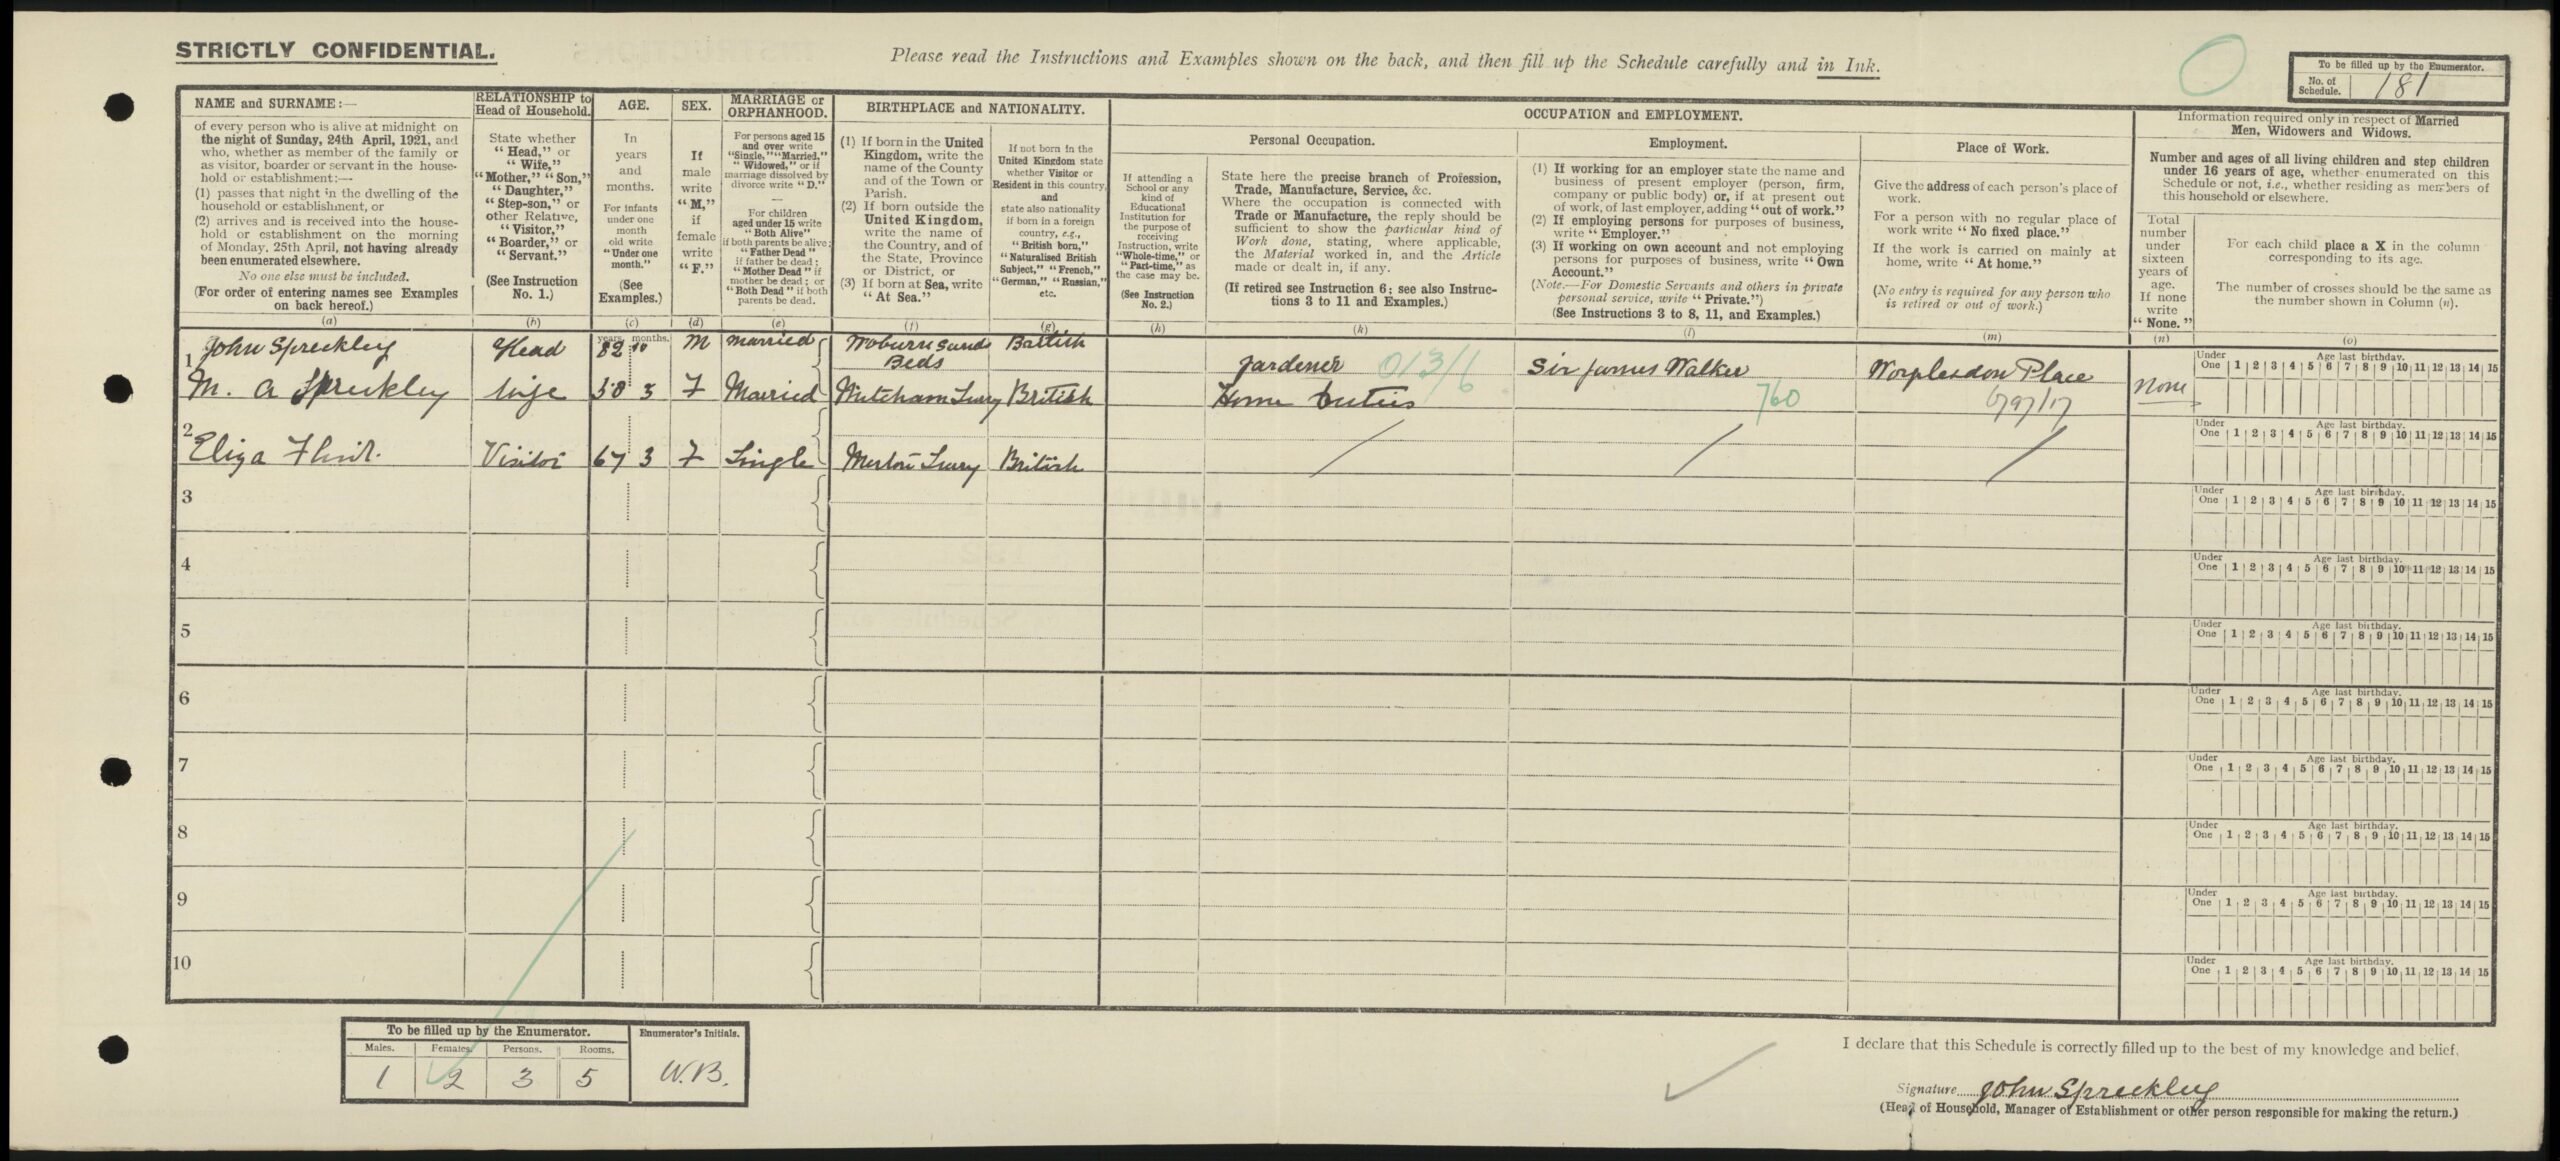 STRICTLY CONFIDENTIAL.
Please read the Instructions and Examples shown on the back, and then fill up the Schedule carefully and in Ink.
To be filled up by the Enumerator.
No. of Schedule. 181
NAME and SURNAME:—
of every person who is alive at midnight on
the night of Sunday, 24th April, 1921, and
who, whether as member of the family or
as visitor, boarder or servant in the house-
hold or establishment:—
(1) passes that night in the dwelling of the
household or establishment, or
(2) arrives and is received into the house-
hold or establishment on the morning
of Monday, 25th April, not having already
been enumerated elsewhere.
No one else must be included.
(For order of entering names see Examples
on back hereof.)
(a)
RELATIONSHIP to
Head of Household.
State whether
"Head," or
"Wife,"
"Mother," "Son,"
"Daughter,"
"Step-son," or
other Relative,
"Visitor,"
"Boarder," or
"Servant."
(See Instruction
No. 1.)
(b)
AGE.
In
years
and
months.
For infants
under one
month
old write
"Under one
month."
(See
Examples.)
(c)
SEX.
If
male
write
"M,"
if
female
write
"F."
(d)
MARRIAGE or
ORPHANHOOD.
For persons aged 15
and over write
"Single," "Married,"
"Widowed," or if
marriage dissolved by
divorce write "D."
—
For children
aged under 15 write
"Both Alive"
if both parents be alive;
"Father Dead"
if father be dead;
"Mother Dead" if
mother be dead; or
"Both Dead" if both
parents be dead.
(e)
BIRTHPLACE and NATIONALITY.
(1) If born in the United
Kingdom, write the
name of the County
and of the Town or
Parish.
(2) If born outside the
United Kingdom,
write the name of
the Country, and of
the State, Province
or District, or
(3) If born at Sea, write
"At Sea."
(f)
If not born in the
United Kingdom state
whether Visitor or
Resident in this country,
and
state also nationality
if born in a foreign
country, e.g.,
"British born,"
"Naturalised British
Subject," "French,"
"German," "Russian,"
etc.
(g)
OCCUPATION and EMPLOYMENT.
If attending a
School or any
kind of
Educational
Institution for
the purpose of
receiving
Instruction, write
"Whole-time," or
"Part-time," as
the case may be.
(See Instruction
No. 2.)
(h)
Personal Occupation.
State here the precise branch of Profession,
Trade, Manufacture, Service, &c.
Where the occupation is connected with
Trade or Manufacture, the reply should be
sufficient to show the particular kind of
Work done, stating, where applicable,
the Material worked in, and the Article
made or dealt in, if any.
(If retired see Instruction 6; see also Instruc-
tions 3 to 11 and Examples.)
(k)
Employment.
(1) If working for an employer state the name and
business of present employer (person, firm,
company or public body) or, if at present out
of work, of last employer, adding "out of work."
(2) If employing persons for purposes of business,
write "Employer."
(3) If working on own account and not employing
persons for purposes of business, write "Own
Account."
(Note.—For Domestic Servants and others in private
personal service, write "Private.")
(See Instructions 3 to 8, 11, and Examples.)
(l)
Place of Work.
Give the address of each person's place of
work.
For a person with no regular place of
work write "No fixed place."
If the work is carried on mainly at
home, write "At home."
(No entry is required for any person who
is retired or out of work.)
(m)
Information required only in respect of Married
Men, Widowers and Widows.
Number and ages of all living children and step children
under 16 years of age, whether enumerated on this
Schedule or not, i.e., whether residing as members of
this household or elsewhere.
Total
number
under
sixteen
years of
age.
If none
write
"None."
(n)
For each child place a X in the column
corresponding to its age.
The number of crosses should be the same as
the number shown in Column (n).
(o)
years. months.
1 John Spreckley Head 82 10 M Married Woburn Sands Beds British Gardener 013/6 Sir James Walker 760 Worplesdon Place None
M. A Spreckley Wife 58 3 F Married Mitcham Surry British Home Duties
2 Eliza Visitor 67 3 F Single Surry British / / /
3
4
5
6
7
8
9
10
Under One 1 2 3 4 5 6 7 8 9 10 11 12 13 14 15
Age last birthday.
Under One 1 2 3 4 5 6 7 8 9 10 11 12 13 14 15
Age last birthday.
Under One 1 2 3 4 5 6 7 8 9 10 11 12 13 14 15
Age last birthday.
Under One 1 2 3 4 5 6 7 8 9 10 11 12 13 14 15
Age last birthday.
Under One 1 2 3 4 5 6 7 8 9 10 11 12 13 14 15
Age last birthday.
Under One 1 2 3 4 5 6 7 8 9 10 11 12 13 14 15
Age last birthday.
Under One 1 2 3 4 5 6 7 8 9 10 11 12 13 14 15
Age last birthday.
Under One 1 2 3 4 5 6 7 8 9 10 11 12 13 14 15
Age last birthday.
Under One 1 2 3 4 5 6 7 8 9 10 11 12 13 14 15
Age last birthday.
Under One 1 2 3 4 5 6 7 8 9 10 11 12 13 14 15
Age last birthday.
To be filled up by the Enumerator.
Males. Females. Persons. Rooms.
1 2 3 5
Enumerator's Initials.
W.B.
I declare that this Schedule is correctly filled up to the best of my knowledge and belief.
Signature John Spreckley
(Head of Household, Manager of Establishment or other person responsible for making the return.)